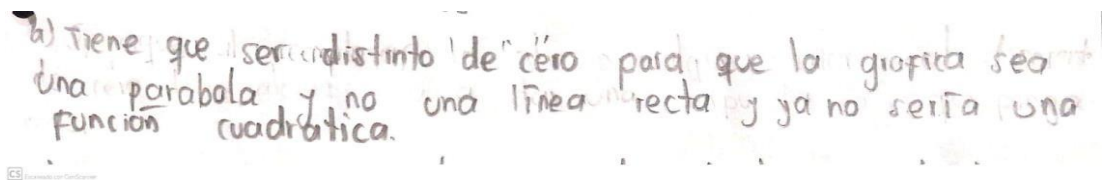 a) Tiene que ser distinto de cero para que la grafica sea
una parabola y no una línea recta y ya no sería una
función cuadrática.
CS Escaneado con CamScanner